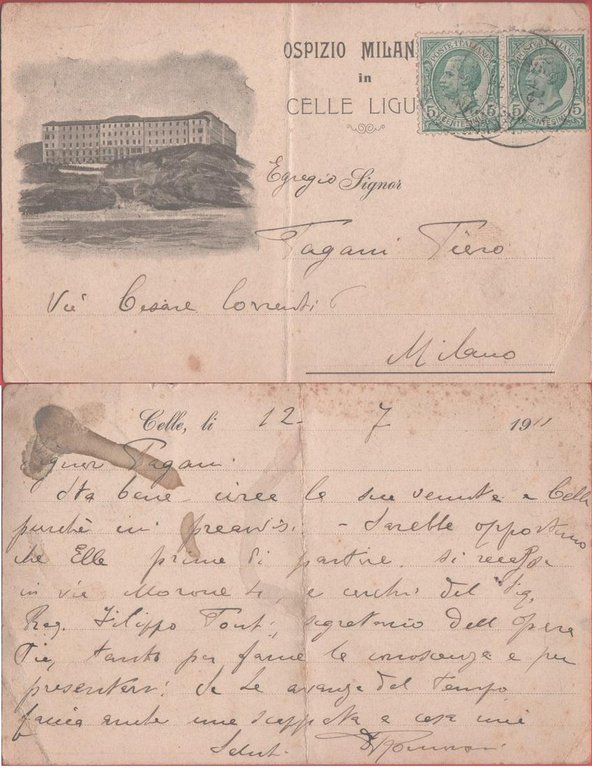 OSPIZIO MILAN
in
CELLE LIGU
POSTE ITALIANE
POSTE ITALIANE
5 5
5 5
Egregio Signor
Pagani Piero
Via Cesare Correnti 6
Milano
Celle, li 12 - 7 1911
Signor Pagani
Sta bene circa la sua venuta a Celle
purchè mi preavvisi - Sarebbe opportuno
che Ella prima di partire si rechi
in via Morone 4, e cerchi del Sig.
Rag. Filippo Ponti, segretario dell Opera
Pia, tanto per farne la conoscenza e per
presentarsi. Se Le avanza del tempo
faccia anche una scappata a casa mia
Saluti